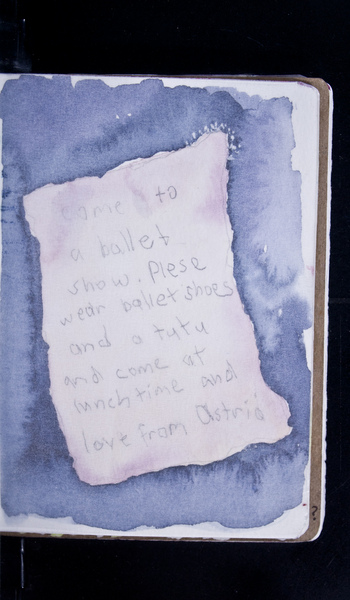 come to
a ballet
show. Plese
wear ballet shoes
and a tutu
and come at
lunchtime and
love from Astrid
?